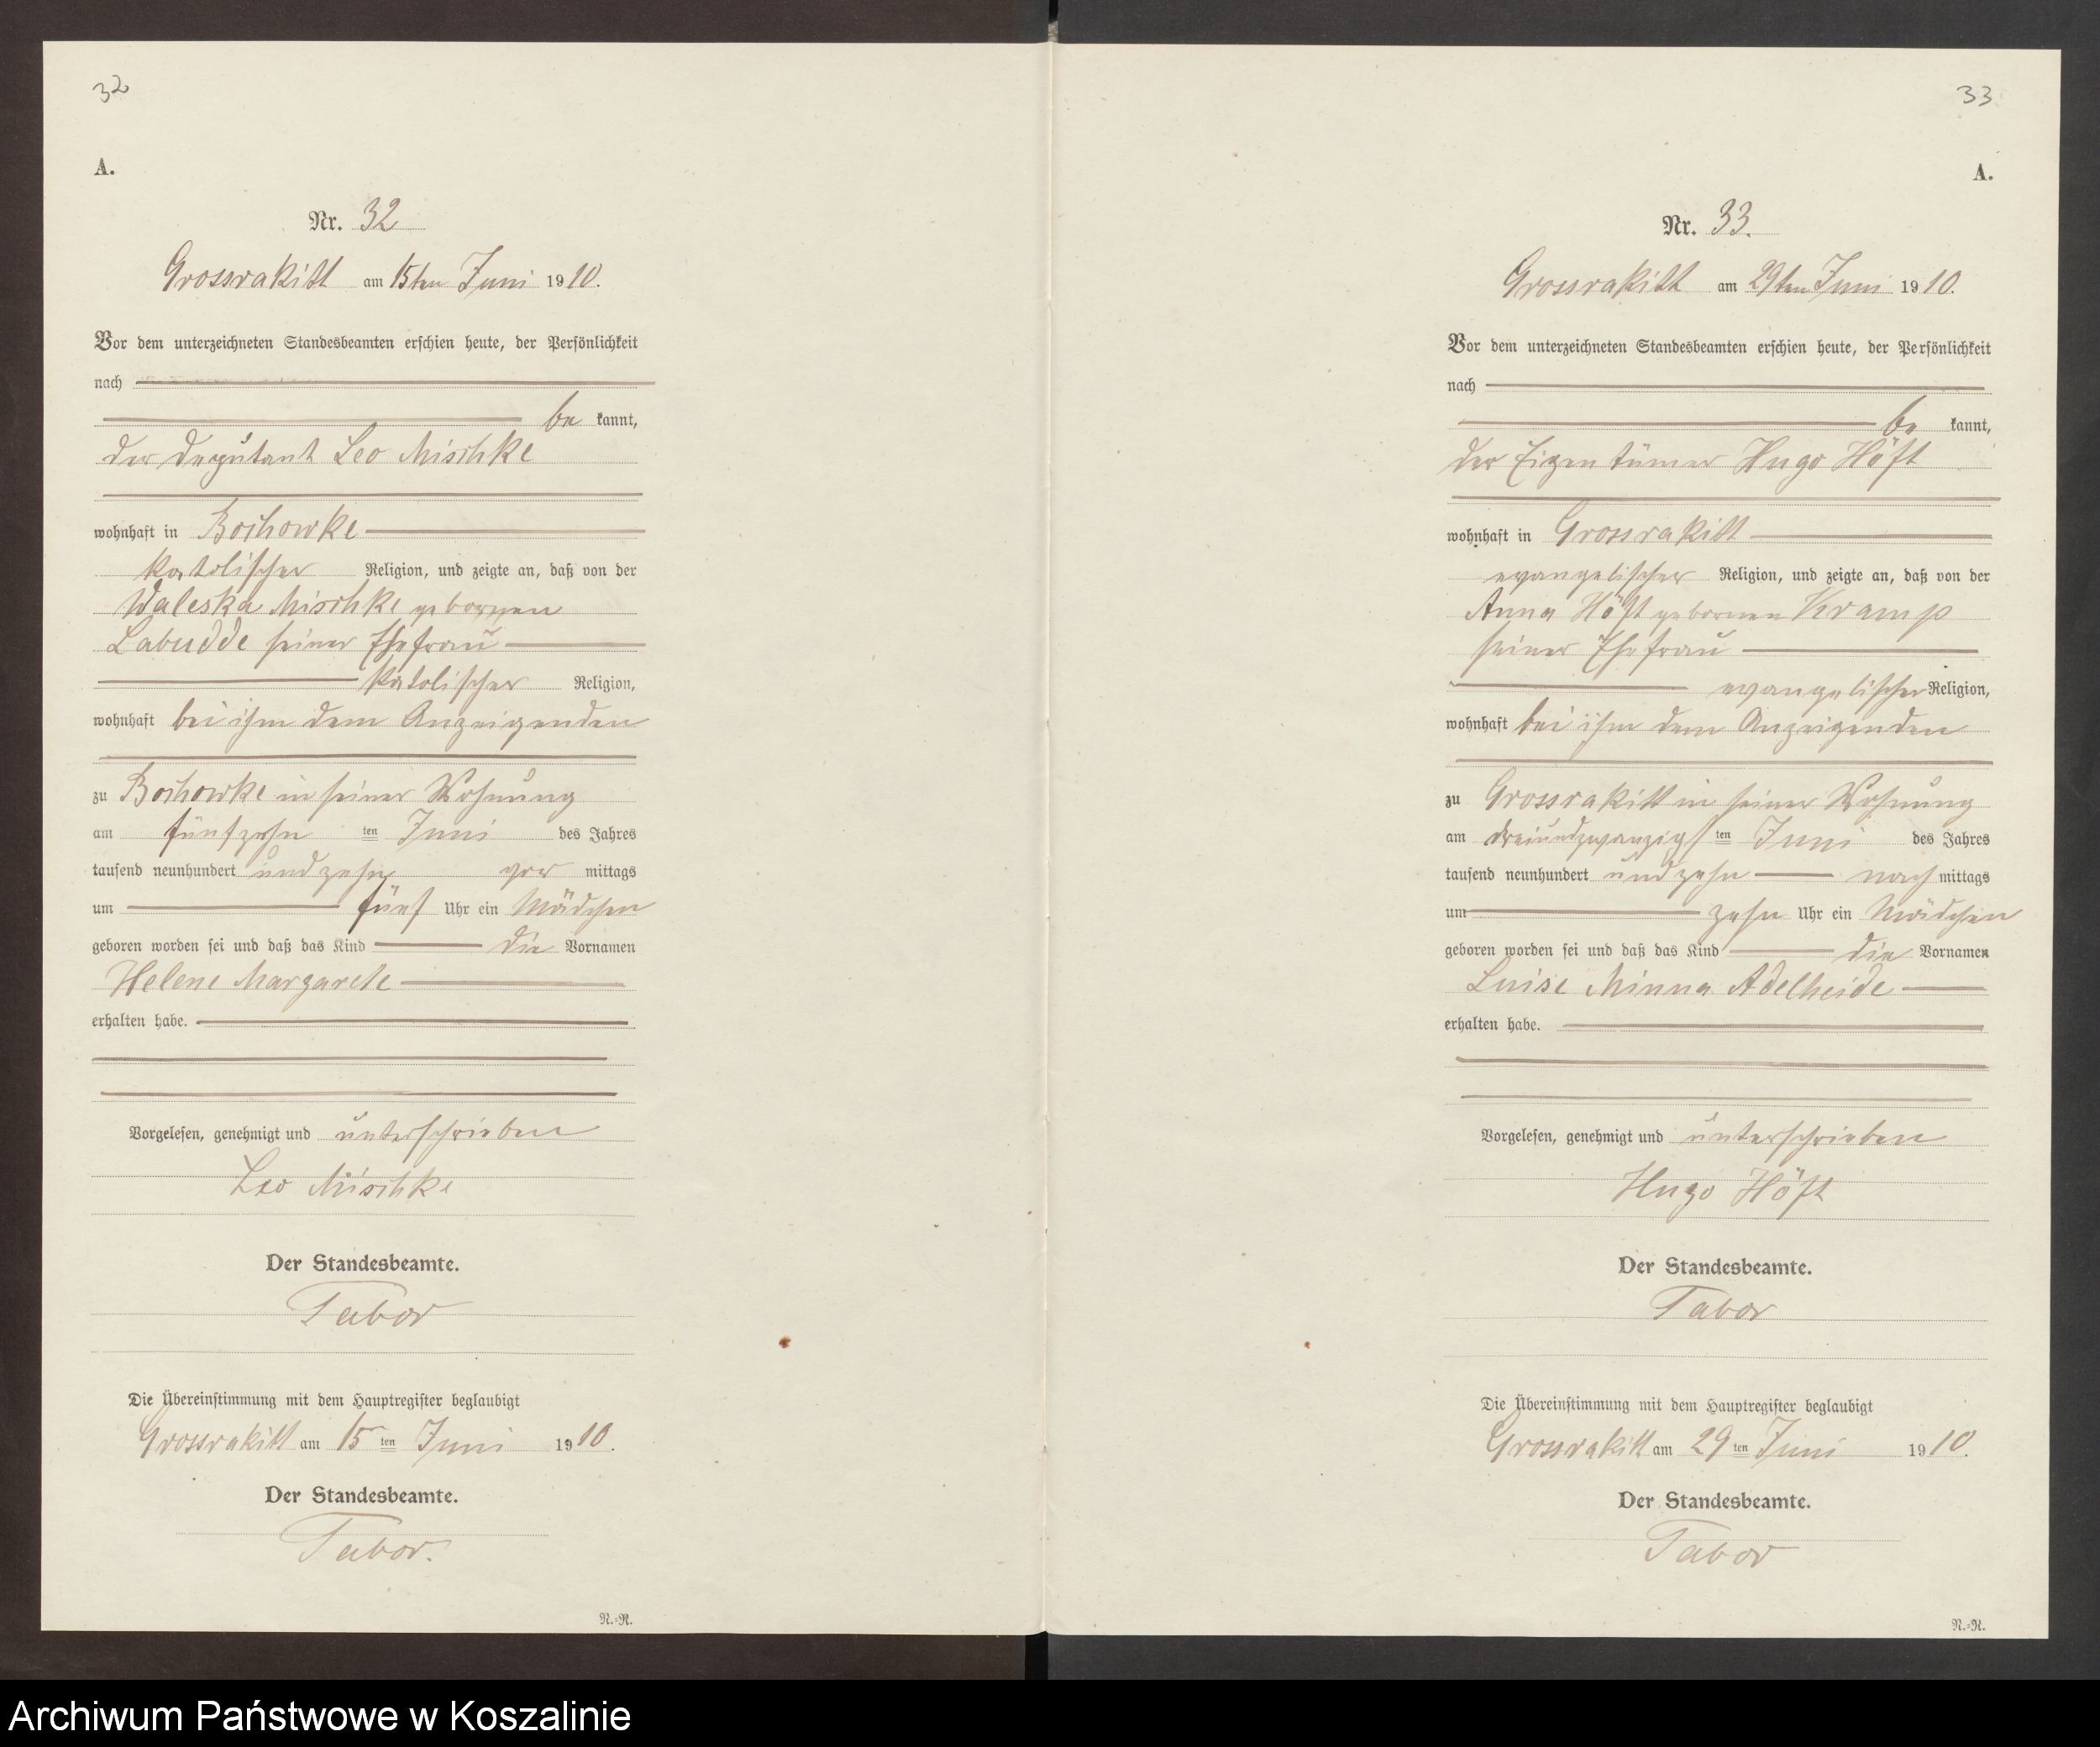 32
A.
Nr. 32
Grossrakitt am 15ten Juni 1910.
Vor dem unterzeichneten Standesbeamten erschien heute, der Persönlichkeit
nach
be kannt,
der Deputant Leo Mischke
wohnhaft in Bochowke
katolischer Religion, und zeigte an, daß von der
Waleska Mischke gebornen
Labudde seiner Ehefrau
katolischer Religion,
wohnhaft bei ihm dem Anzeigenden
zu Bochowke in seiner Wohnung
am fünfzehn ten Juni des Jahres
tausend neunhundert und zehn vor mittags
um fünf Uhr ein Mädchen
geboren worden sei und daß das Kind die Vornamen
Helene Margarete
erhalten habe.
Vorgelesen, genehmigt und unterschrieben
Leo Mischke
Der Standesbeamte.
Tabor
Die Übereinstimmung mit dem Hauptregister beglaubigt
Grossrakitt am 15 ten Juni 1910.
Der Standesbeamte.
Tabor.
N.=N.
33
A.
Nr. 33.
Grossrakitt am 29ten Juni 1910.
Vor dem unterzeichneten Standesbeamten erschien heute, der Persönlichkeit
nach
be kannt,
der Eigentümer Hugo Höft
wohnhaft in Grossrakitt
evangelischer Religion, und zeigte an, daß von der
Anna Höft gebornen Kramp
seiner Ehefrau
evangelischer Religion,
wohnhaft bei ihm dem Anzeigenden
zu Grossrakitt in seiner Wohnung
am dreiundzwanzigs ten Juni des Jahres
tausend neunhundert und zehn nach mittags
um zehn Uhr ein Mädchen
geboren worden sei und daß das Kind die Vornamen
Luise Minna Adelheide
erhalten habe.
Vorgelesen, genehmigt und unterschrieben
Hugo Höft
Der Standesbeamte.
Tabor
Die Übereinstimmung mit dem Hauptregister beglaubigt
Grossrakitt am 29 ten Juni 1910.
Der Standesbeamte.
Tabor
N.=N.
Archiwum Państwowe w Koszalinie